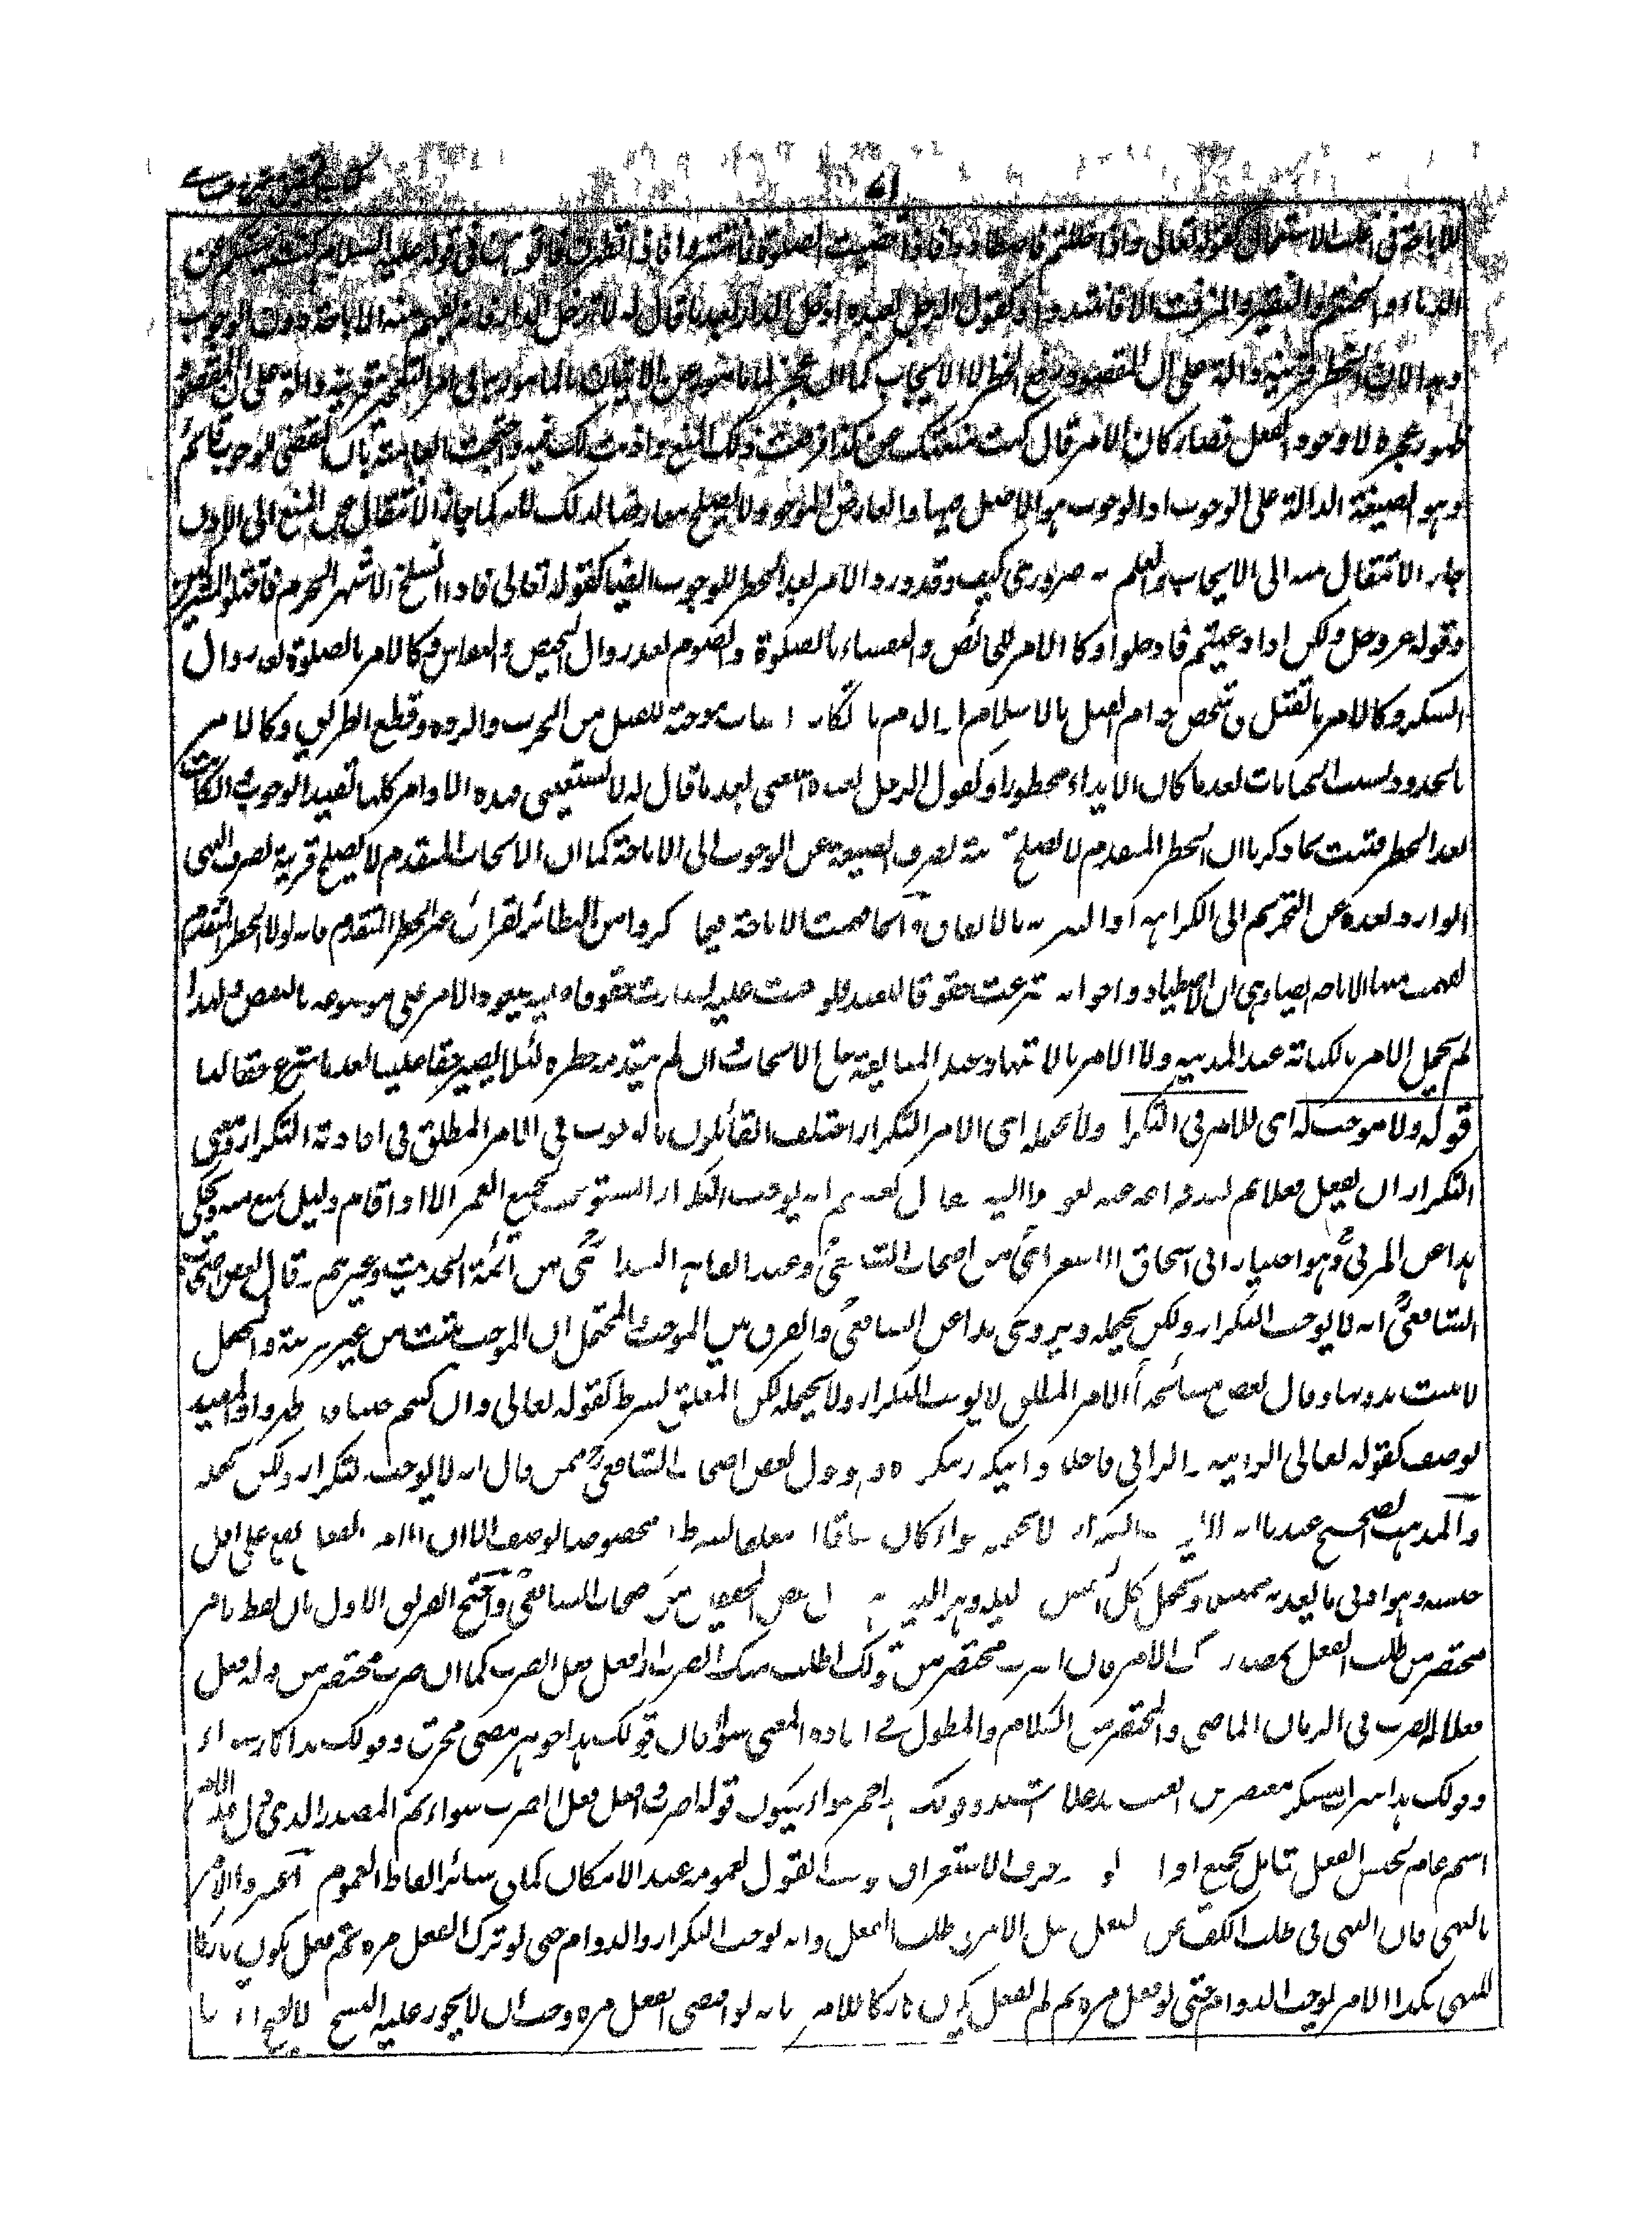 للاباحة فى اغلب الاستعمال كقوله تعالى واذا حللتم فاصطادوا فاذا قضيت الصلوة فانتشروا فاذا تطهرن فاتوهن فى قوله عليه السلام كنت نهيتكم عن
الدباء والحنتم والنقير والمزفت الا فانتبذوا وكقول الرجل لعبده ادخل الدار بعد ما قال له لا تدخل الدار فانه يفهم منه الاباحة دون الوجوب
وهو لان الحظر قرينة دالة على ان المقصود رفع الحظر لا الايجاب كما ان عجز المامور عن الاتيان بالمامور به فى امر التعجيز قرينة دالة على ان المقصود
ظهور عجزه لا وجود الفعل فصار كان الامر قال كنت منعتك عن كذا فرفعت ذلك المنع واذنت لك فيه واحتجت العامة بان المقتضى للوجوب قائم
وهو الصيغة الدالة على الوجوب اذ الوجوب هو الاصل فيها والعارض الموجود لا يصلح معارضا لذلك لانه كما جاز الانتقال من المنع الى الاذن
جاز الانتقال منه الى الايجاب والعلم به ضرورى كيف وقد ورد الامر بعد الحظر للوجوب ايضا كقوله تعالى فاذا انسلخ الاشهر الحرم فاقتلوا المشركين
وقوله عز وجل ولكن اذا دعيتم فادخلوا وكالامر للحائض والنفساء بالصلوة والصوم بعد زوال الحيض والنفاس وكالامر بالصلوة بعد زوال
السكر وكالامر بالقتل فى شخص حرام القتل بالاسلام او الذمة بارتكاب اسباب موجبة للقتل من الحرب والردة وقطع الطريق وكالامر
بالحدود بسبب الجنايات بعد ما كان الايذاء محظورا وكقول الرجل لعبده اسقنى بعد ما قال له لا تسقنى فهذه الاوامر كلها تفيد الوجوب وان كانت
بعد الحظر فثبت بما ذكرنا ان الحظر المتقدم لا يصلح قرينة لصرف الصيغة عن الوجوب الى الاباحة كما ان الايجاب المتقدم لا يصلح قرينة لصرف النهى
الوارد بعده عن التحريم الى الكراهة او التنزيه بالاتفاق وانما فهمت الاباحة فيما ذكروا من النظائر بقرائن غير الحظر المتقدم فانه لولا الحظر المتقدم
لفهمت منها الاباحة ايضا وهى ان الاصطياد واخواته شرعت حقوقا للعبد فلو وجبت عليه لصارت حقوقا عليه فيعود الامر على موضوعه بالنقض ولهذا
لم يحمل الامر بالكتابة عند المداينة ولا الامر بالاشهاد عند المبايعة على الايجاب وان لم يتقدمه حظر لئلا يصير حقا علينا بعد ما شرع حقا لنا
قوله ولا موجب له اى للامر فى التكرار ولا يحتمله اى الامر التكرار اختلف القائلون بالوجوب فى الامر المطلق فى افادته التكرار ومعنى
التكرار ان يفعل فعلا ثم بعد فراغه عنه يعود اليه فقال بعضهم انه يوجب التكرار المستوعب لجميع العمر الا اذا قام دليل يمنع منه ويحكى
هذا عن المزنى وهو اختيار ابى اسحاق الاسفرائنى من اصحاب الشافعى وعبد القاهر البغدادى من ائمة الحديث وغيرهم وقال بعض اصحاب
الشافعى انه لا يوجب التكرار ولكن يحتمله ويروى هذا عن الشافعى والفرق بين الموجب والمحتمل ان الموجب يثبت من غير قرينة والمحتمل
لا يثبت بدونها وقال بعض مشائخنا الامر المطلق لا يوجب التكرار ولا يحتمله لكن المعلق بشرط كقوله تعالى وان كنتم جنبا فاطهروا او المقيد
بوصف كقوله تعالى الزانية والزانى فاجلدوا يتكرر بتكرره وهو قول بعض اصحاب الشافعى ممن قال انه لا يوجب التكرار ولكن يحتمله
والمذهب الصحيح عندنا انه لا يوجب التكرار ولا يحتمله سواء كان مطلقا او معلقا بشرط او مخصوصا بوصف الا ان الامر بالفعل يقع على اقل
جنسه وهو ادنى ما يعد به ممتثلا ويحتمل كل الجنس بدليله وهو النية وهو قول بعض المحققين من اصحاب الشافعى واحتج الفريق الاول بان لفظ الامر
مختصر من طلب الفعل بمصدر ذلك الامر فان اضرب مختصر من قولك اطلب منك الضرب او افعل فعل الضرب كما ان ضرب مختصر من قوله فعل
فعل الضرب فى الزمان الماضى والمختصر من الكلام والمطول فى افادة المعنى سواء فان قولك هذا جوهر مضىء محرق وقولك هذا نار سواء
وقولك هذا شراب مسكر معتصر من العنب بعد ما اشتد وقولك هذا خمر سواء فيكون قوله اضرب وافعل فعل الضرب سواء ثم المصدر الذى دل عليه الامر
اسم عام لجنس الفعل شامل لجميع افراده لوجود حرف الاستغراق وجب القول بعمومه عند الامكان كما فى سائر الفاظ العموم واعتبروا الامر
بالنهى فان النهى فى طلب الكف عن الفعل مثل الامر فى طلب الفعل وانه يوجب التكرار والدوام حتى لو ترك الفعل مرة ثم فعل يكون تاركا
للنهى فكذا الامر يوجب الدوام حتى لو فعل مرة ثم لم يفعل يكون تاركا للامر بانه لو اقتضى الفعل مرة وجب ان لا يجوز عليه النسخ